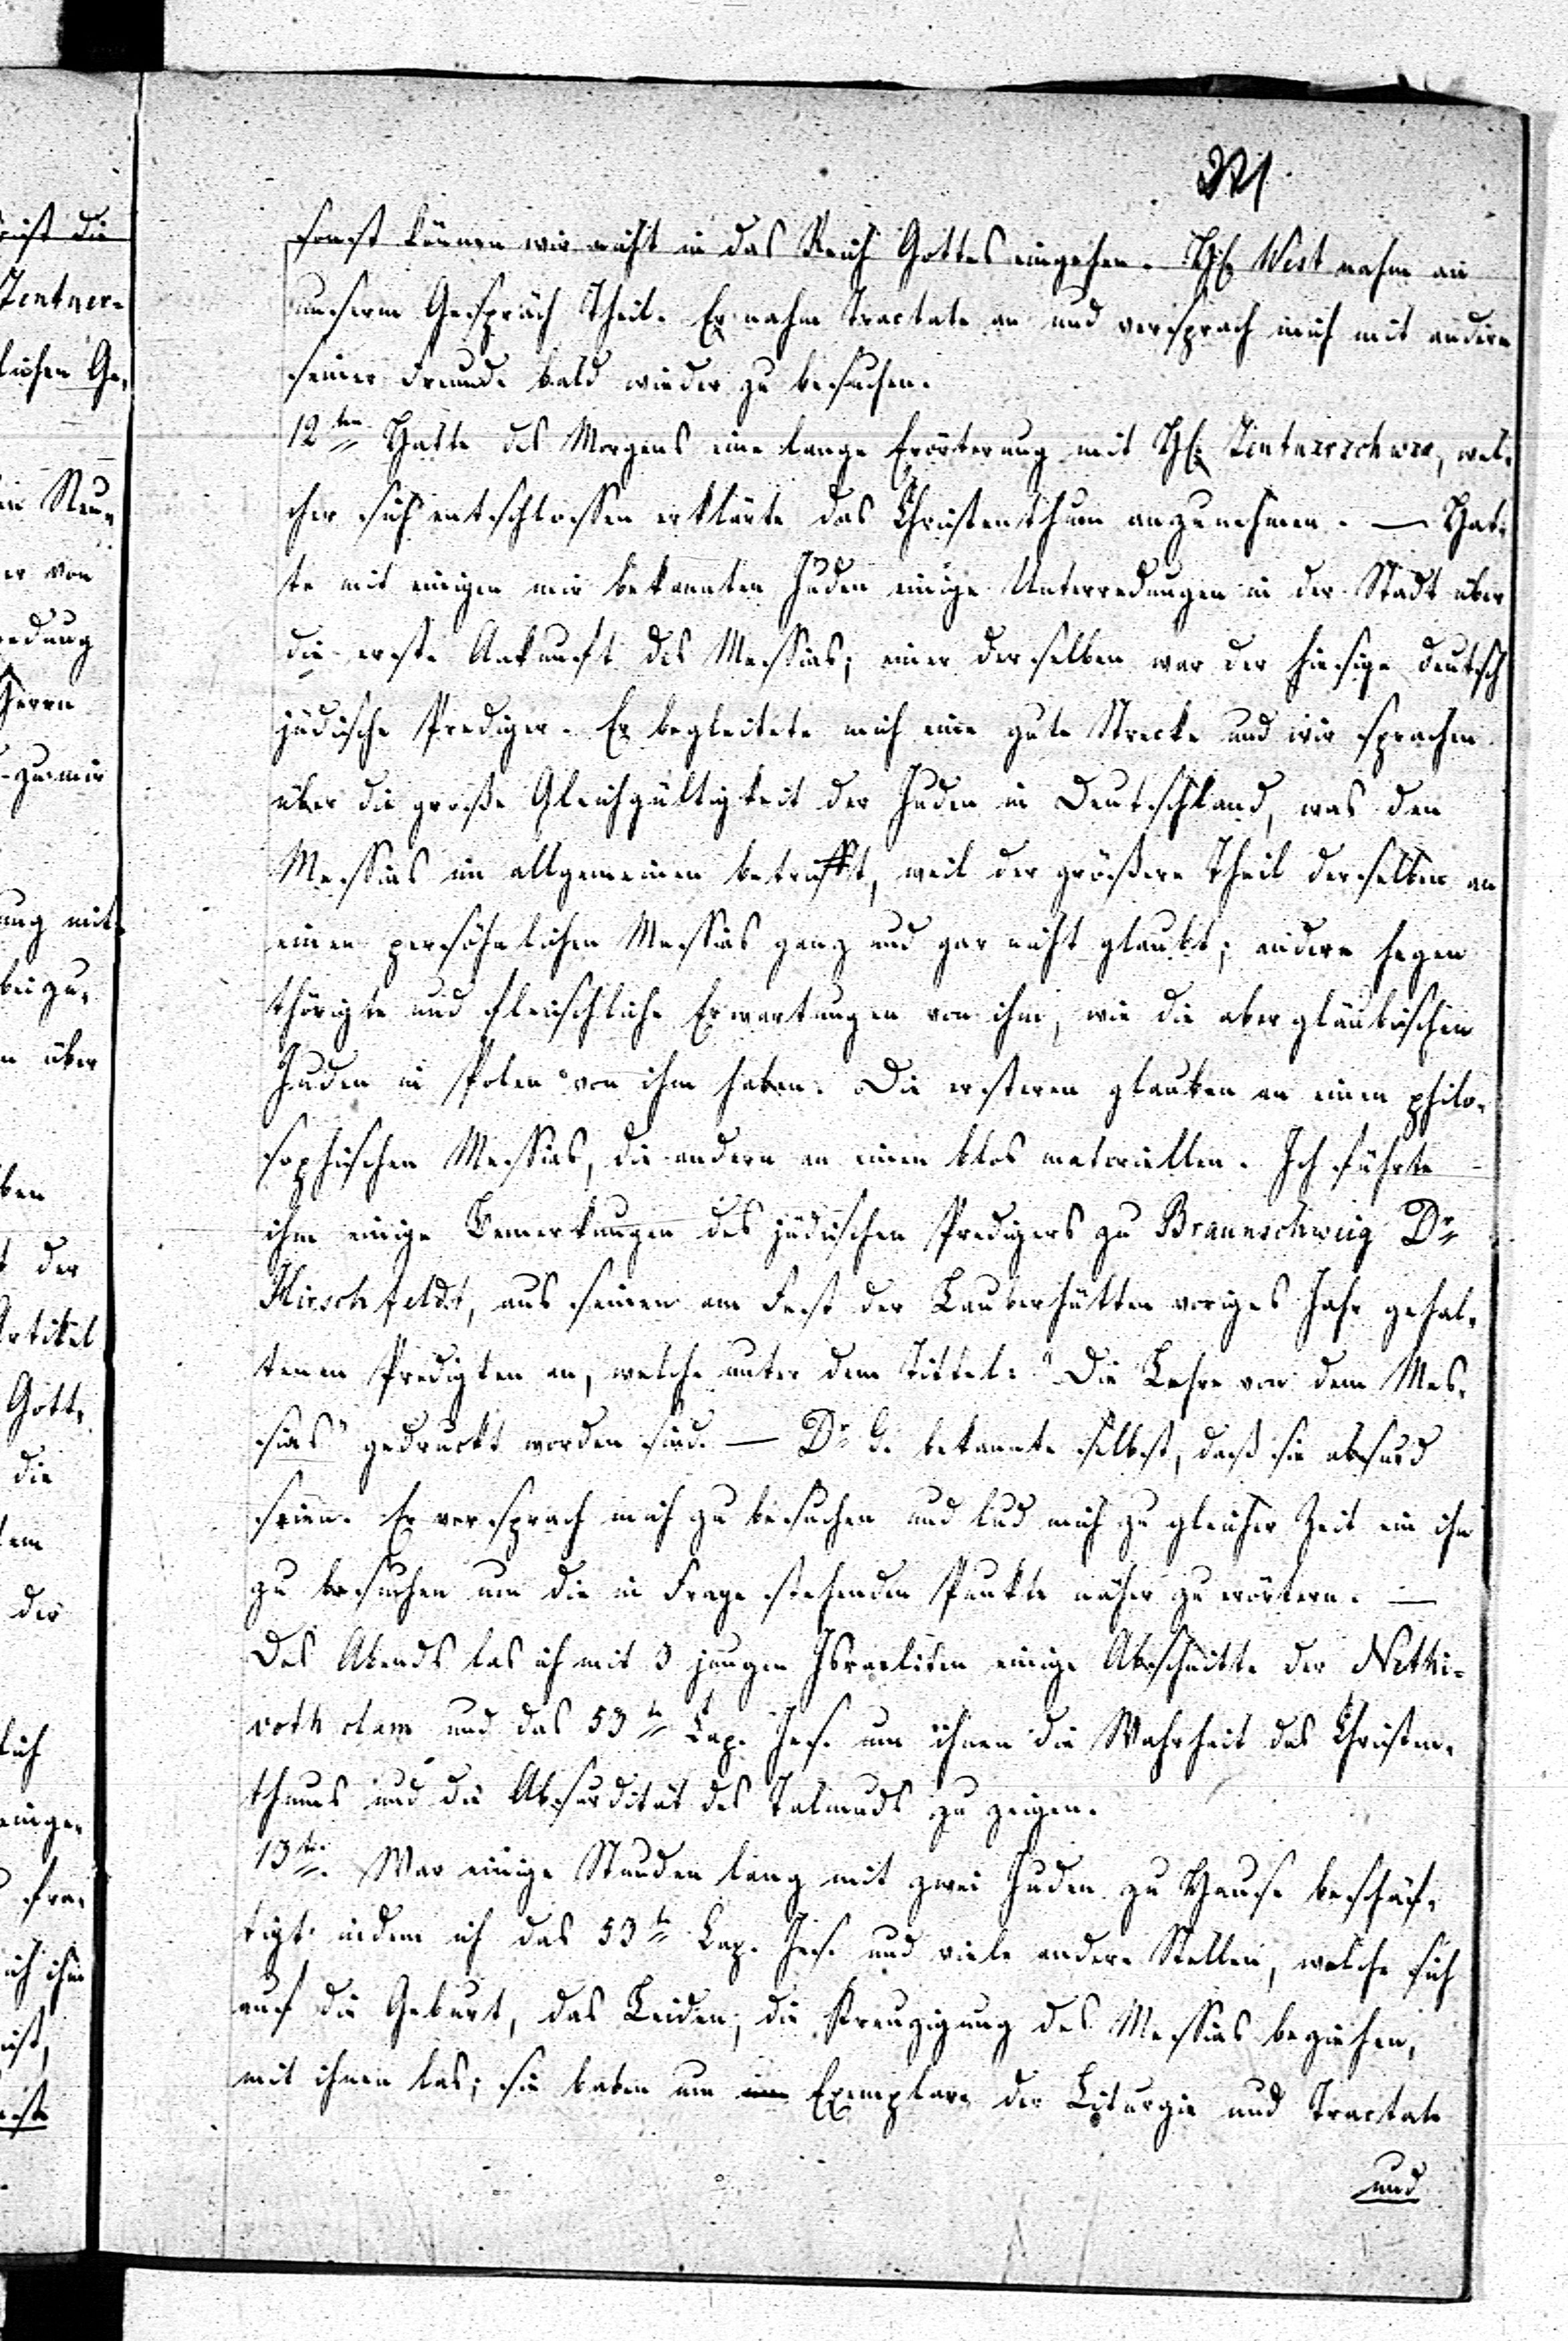 sonst können wir nicht in das Reich Gottes eingehen. H. West nahm an
unserm Gespräch Theil. Er nahm Tractate an und versprach mich mit andern
seiner Freunde bald wieder zu besuchen.
12ten Hatte des Morgens eine lange Erörterung mit H. Zentnerschwer, wel-
cher sich entschlossen erklärte das Christenthum anzunehmen. — Hat-
te mit einigen mir bekannten Juden einige Unterredungen in der Stadt über
die erste Ankunft des Messias; einer derselben war der hiesige deutsch
jüdische Prediger. Er begleitete mich eine gute Strecke und wir sprachen
über die große Gleichgültigkeit der Juden in Deutschland, was den
Messias im allgemeinen betrifft, weil der größere Theil derselben an
einen persöhnlichen Messias ganz und gar nicht glaubt; andere hegen
thörigte und fleischliche Erwartungen von ihm, wie die abergläubischen
Juden in Polen von ihm haben. Die ersteren glauben an einen philo-
sophischen Messias, die andern an einen blos materiellen. Ich führte
ihm einige Bemerkungen des jüdischen Predigers zu Braunschweig Dr
Hirschfeldt, aus seinen am Fest der Lauberhütten voriges Jahr gehal-
tenen Predigten an, welche unter dem Tittel: "Die Lehre von dem Mes-
sias" gedruckt worden sind. — Dr G. bekannte selbst, daß sie absurd
seien. Er versprach mich zu besuchen und lud mich zu gleicher Zeit ein ihn
zu besuchen um die in Frage stehenden Punkte näher zu erörtern. —
Des Abends las ich mit 3 jungen Israeliten einige Abschnitte der Nethi-
voth olam und das 53te Cap. Jes. um ihnen die Wahrheit des Christen-
thums und die Absurdität des Talmuds zu zeigen.
13ten. War einige Stunden lang mit zwei Juden zu Hause beschäf-
tigt indem ich das 53te Cap. Jes. und viele andere Stellen, welche sich
auf die Geburt, das Leiden, die Kreuzigung des Messias beziehen,
mit ihnen las; sie baten um Exemplare der Liturgie und Tractate
und